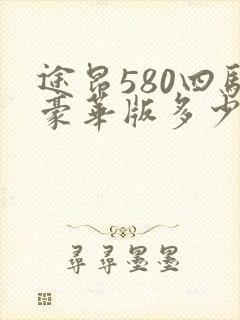 途昂580四驱
豪华版多少
尋尋墨墨